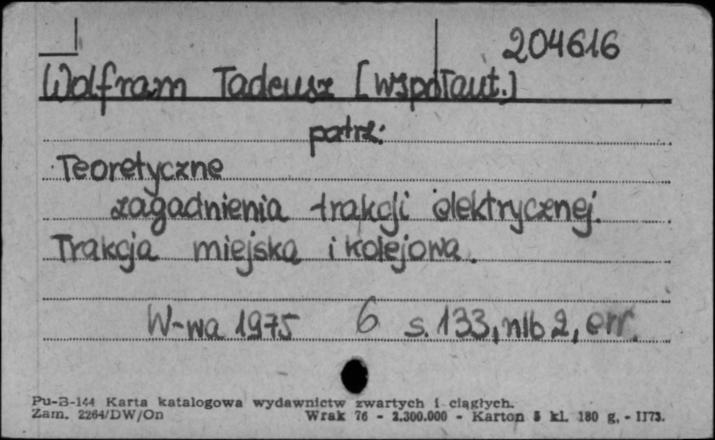 204616
Wolfram Tadeusz [współaut.]
patrz:
Teoretyczne
zagadnienia trakcji elektrycznej.
Trakcja miejska i kolejowa.
W-wa 1975 6 s. 133, nlb 2, err.
Pu-B-144 Karta katalogowa wydawnictw zwartych i ciągłych.
Zam. 2264/DW/On Wrak 76 - 2.300.000 - Karton 5 kl. 180 g. - II73.